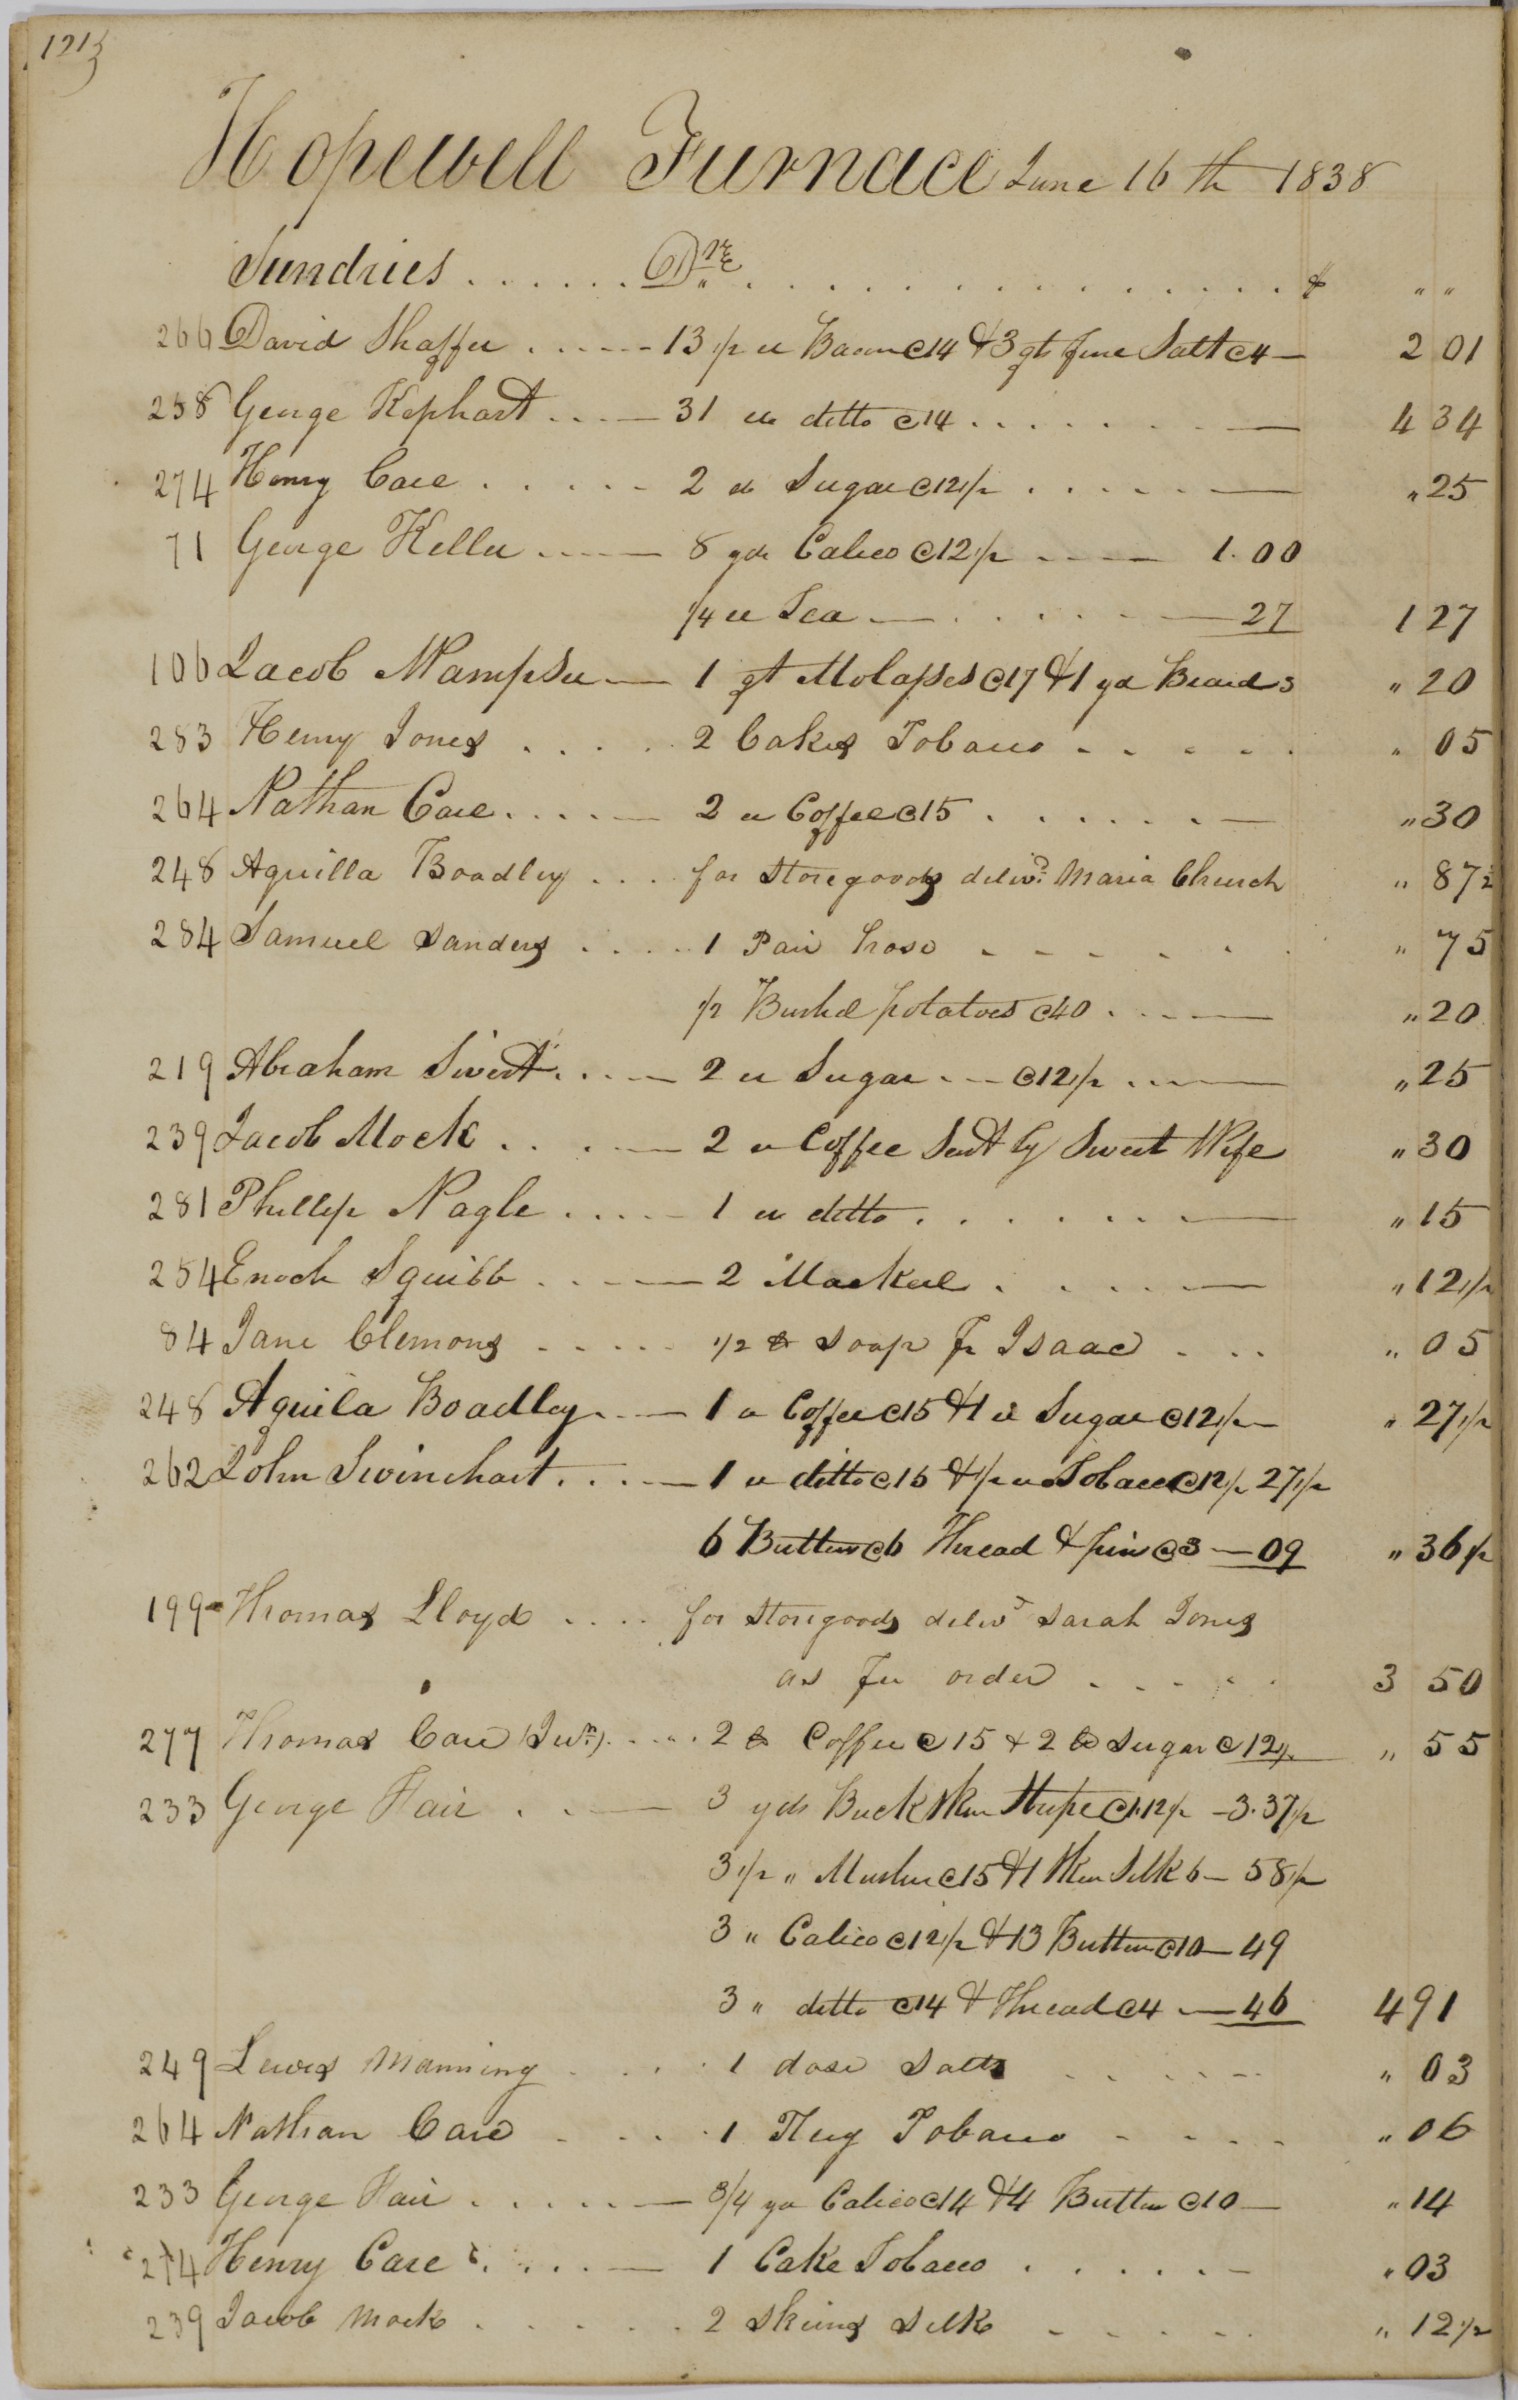 1213
Hopewell Furnace June 16th 1838
Sundries . . . . . . Drs . . . . . . . . . . . . . . . $ " "
266 David Shaffer . . . . - 13 1/2 lb Bacon @14 & 3 qts fine Salt @4 — 2 01
258 George Kephart . . . — 31 lb ditto @14 . . . . . . . — 4 34
274 Henry Care . . . . . - 2 lb Sugar @12 1/2 . . . . . — " 25
71 George Keller . . . — 8 yds Calico @12 1/2 . — — 1.00
1/4 lb Tea — . . . . . — 27 1 27
106 Jacob Wampser — 1 qt Molasses @17 & 1 yd Beard 3 " 20
283 Henry Jones . . . . . 2 Cakes Tobacco - - - - - . " 05
264 Nathan Care . . . . — 2 lb Coffee @15 . . . . . . — " 30
248 Aquilla Boadley . . . . for Storegoods delivd Maria Church " 87 1/2
284 Samuel Sanders . . . . 1 Pair hose - - - - . . " 75
1/2 Bushel potatoes @40 . . . — " 20
219 Abraham Sivert . . . — 2 lb Sugar . — @12 1/2 . . — " 25
239 Jacob Mock . . . — 2 lb Coffee Sent by Sweet Wife " 30
281 Phillip Nagle . . . . - 1 lb ditto . . . . . . — " 15
254 Enoch Squibb . . . — 2 Mackeel . . . . . — " 12 1/2
84 Jane Clemons - - - - - 1/2 lb Soap pr Isaac - . . " 05
248 Aquila Boadley . . — 1 lb Coffee @15 & 1 lb Sugar @12 1/2 — " 27 1/2
262 John Swinehart . . . . — 1 lb ditto @15 & 1/2 lb Tobacco @12 1/2 27 1/2
6 Button @6 Thread & pin @3 — 09 " 36 1/2
199 - Thomas Lloyd . . . . for Storegoods delivd Sarah Jones
as per order - - - - . 3 50
277 Thomas Care (Junr) . . . . . 2 lb Coffee @15 & 2 lb Sugar @12 1/2 " 55
233 George Hair . . — 3 yds Buck Skin Stripe @1.12 1/2 - 3.37 1/2
3 1/2 " Muslin @15 & 1 Sken Silk 6 — 58 1/2
3 " Calico @12 1/2 & 13 Button @10 — 49
3 " ditto @14 & Thread @4 — 46 4 91
249 Lewis Manning . . . . 1 dose Salts . . . . - - " 03
264 Nathan Care - - . . . 1 Plug Tobacco - - - - " 06
233 George Hair . . . . . — 3/4 yd Calico @14 & 4 Button @10 — " 14
274 Henry Care . . . . — 1 Cake Tobacco . . . . . - " 03
239 Jacob Mock . . . . . . 2 Skeins Silk - - - - . " 12 1/2